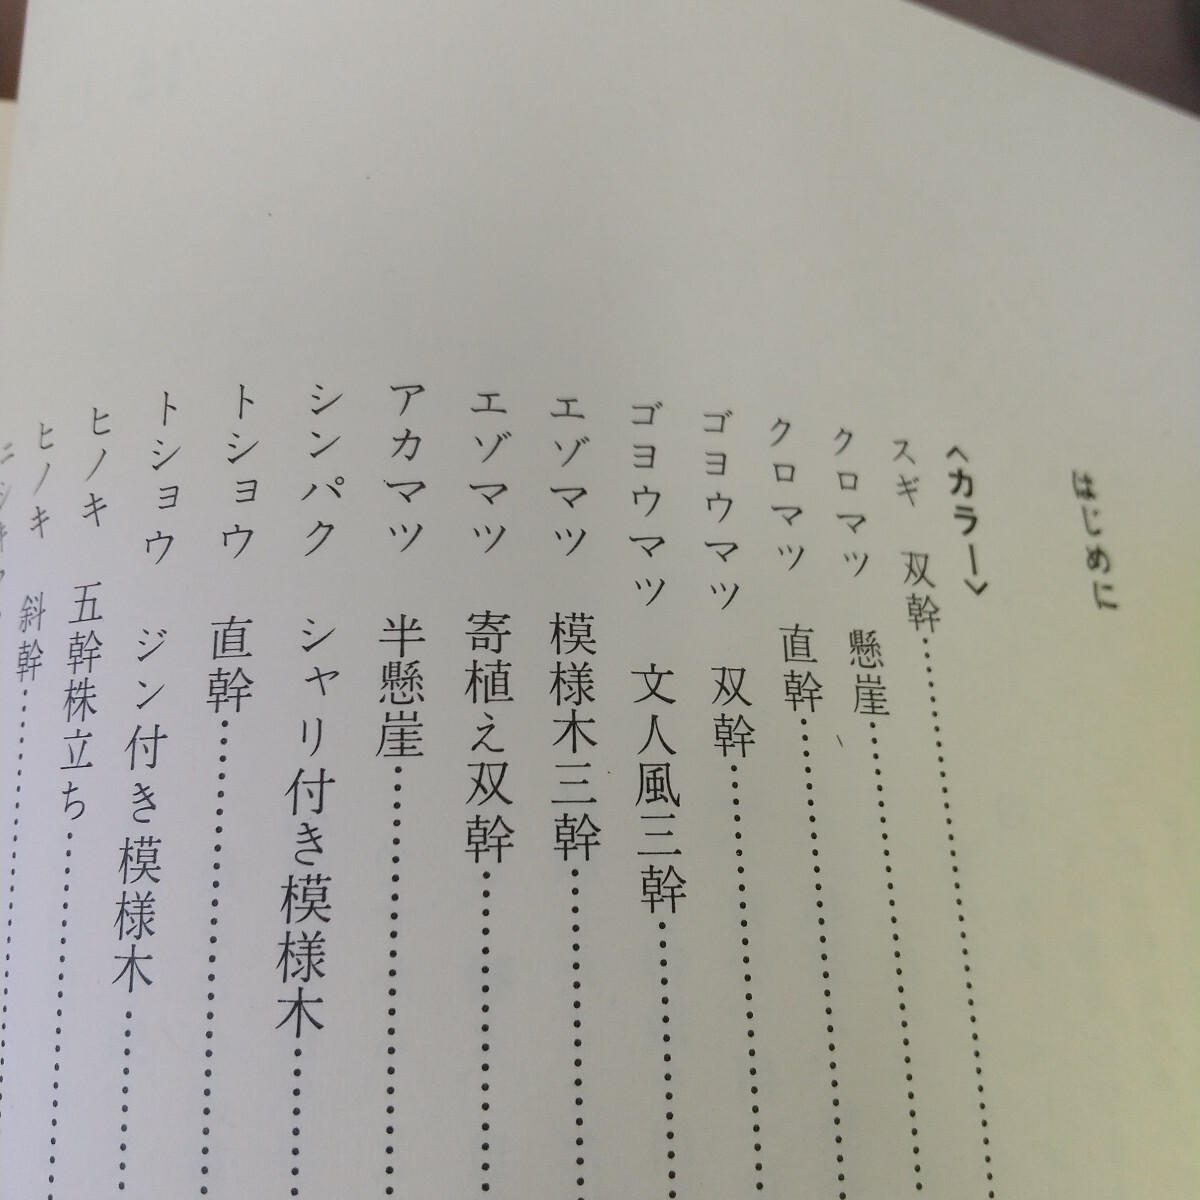 はじめに
〈カラー〉
スギ 双幹
クロマツ 懸崖
クロマツ 直幹
ゴヨウマツ 双幹
ゴヨウマツ 文人風三幹
エゾマツ 模様木三幹
エゾマツ 寄植え双幹
アカマツ 半懸崖
シンパク シャリ付き模様木
トショウ 直幹
トショウ ジン付き模様木
ヒノキ 五幹株立ち
ヒノキ 斜幹